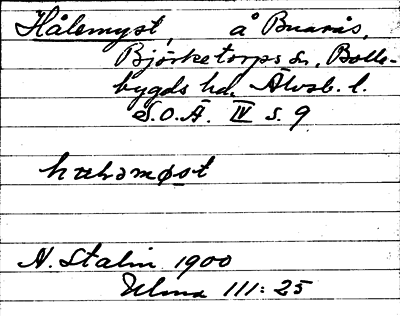 Hålemyst, å Buarås,
Björketorps sn., Bolle-
bygds hd. Älvsb. l.
S.O.Ä. IV s. 9
N. Stalin 1900
Ulma 111:25